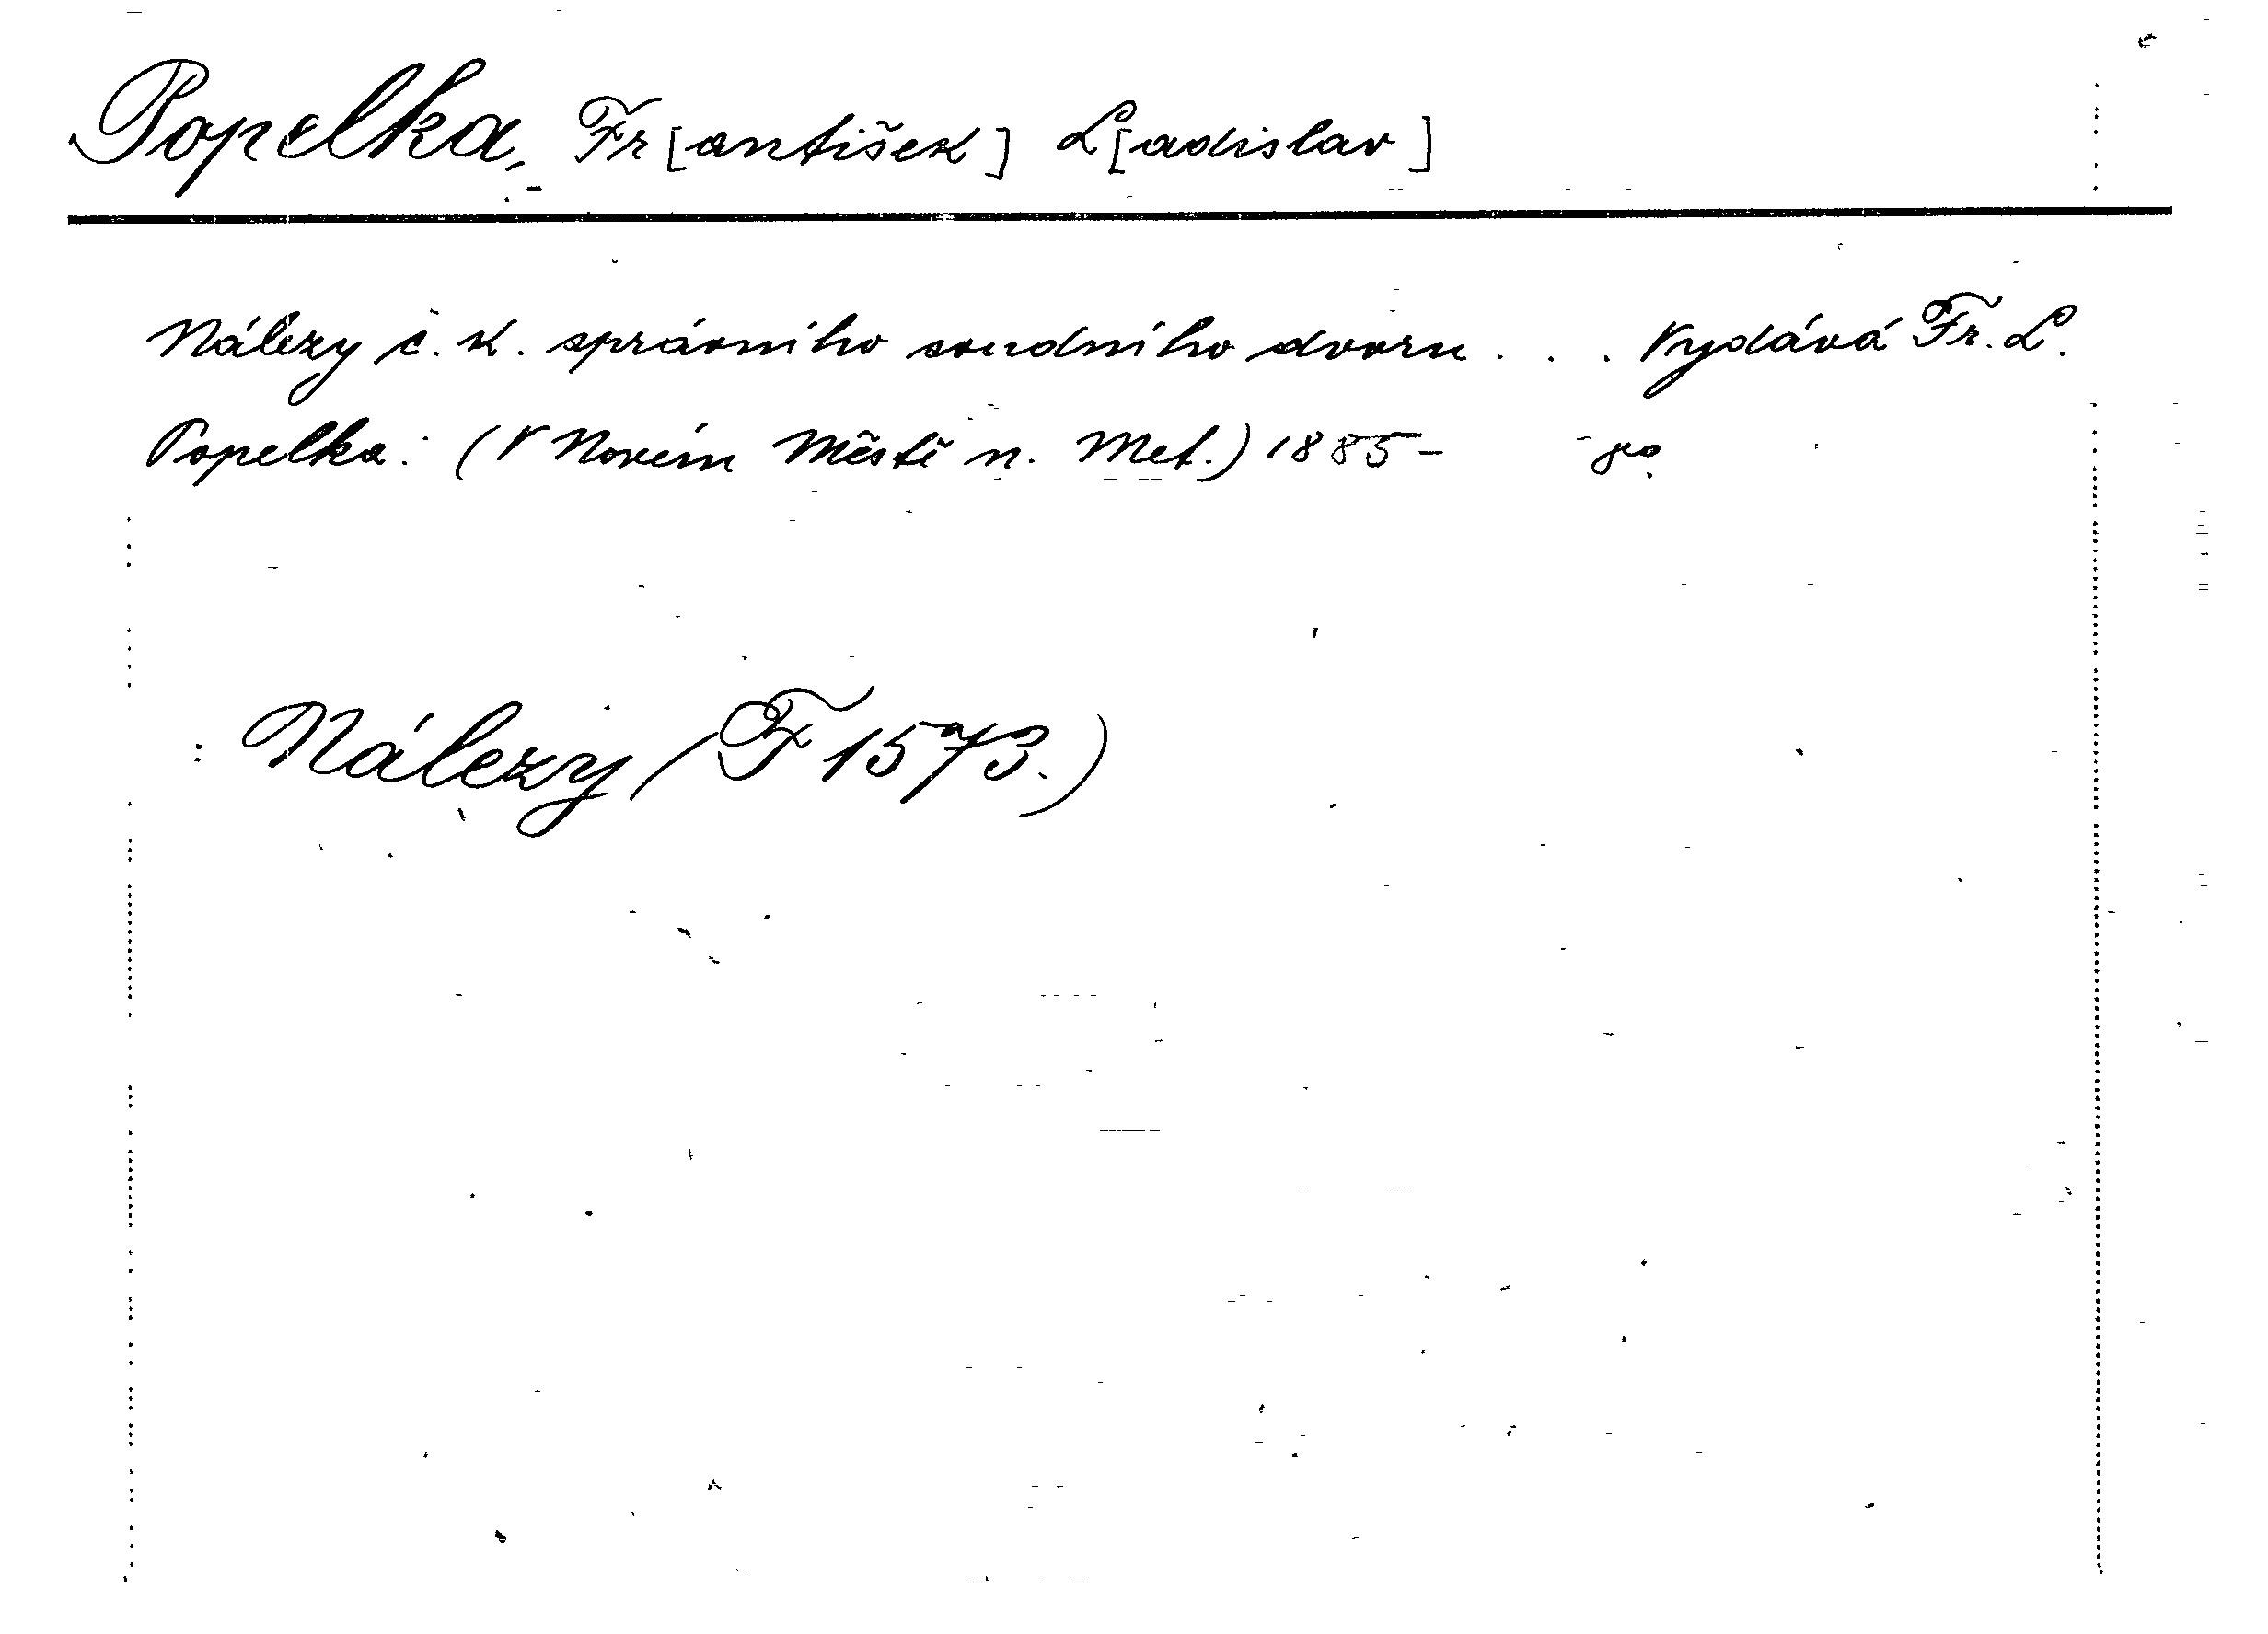 Popelka, Fr[antišek] L[adislav]
Nálezy c. k. správního soudního dvoru . . . Vydává Fr. L.
Popelka: (V Novém Městě n. Met.) 1885– 8º
: Nálezy (F 1573.)